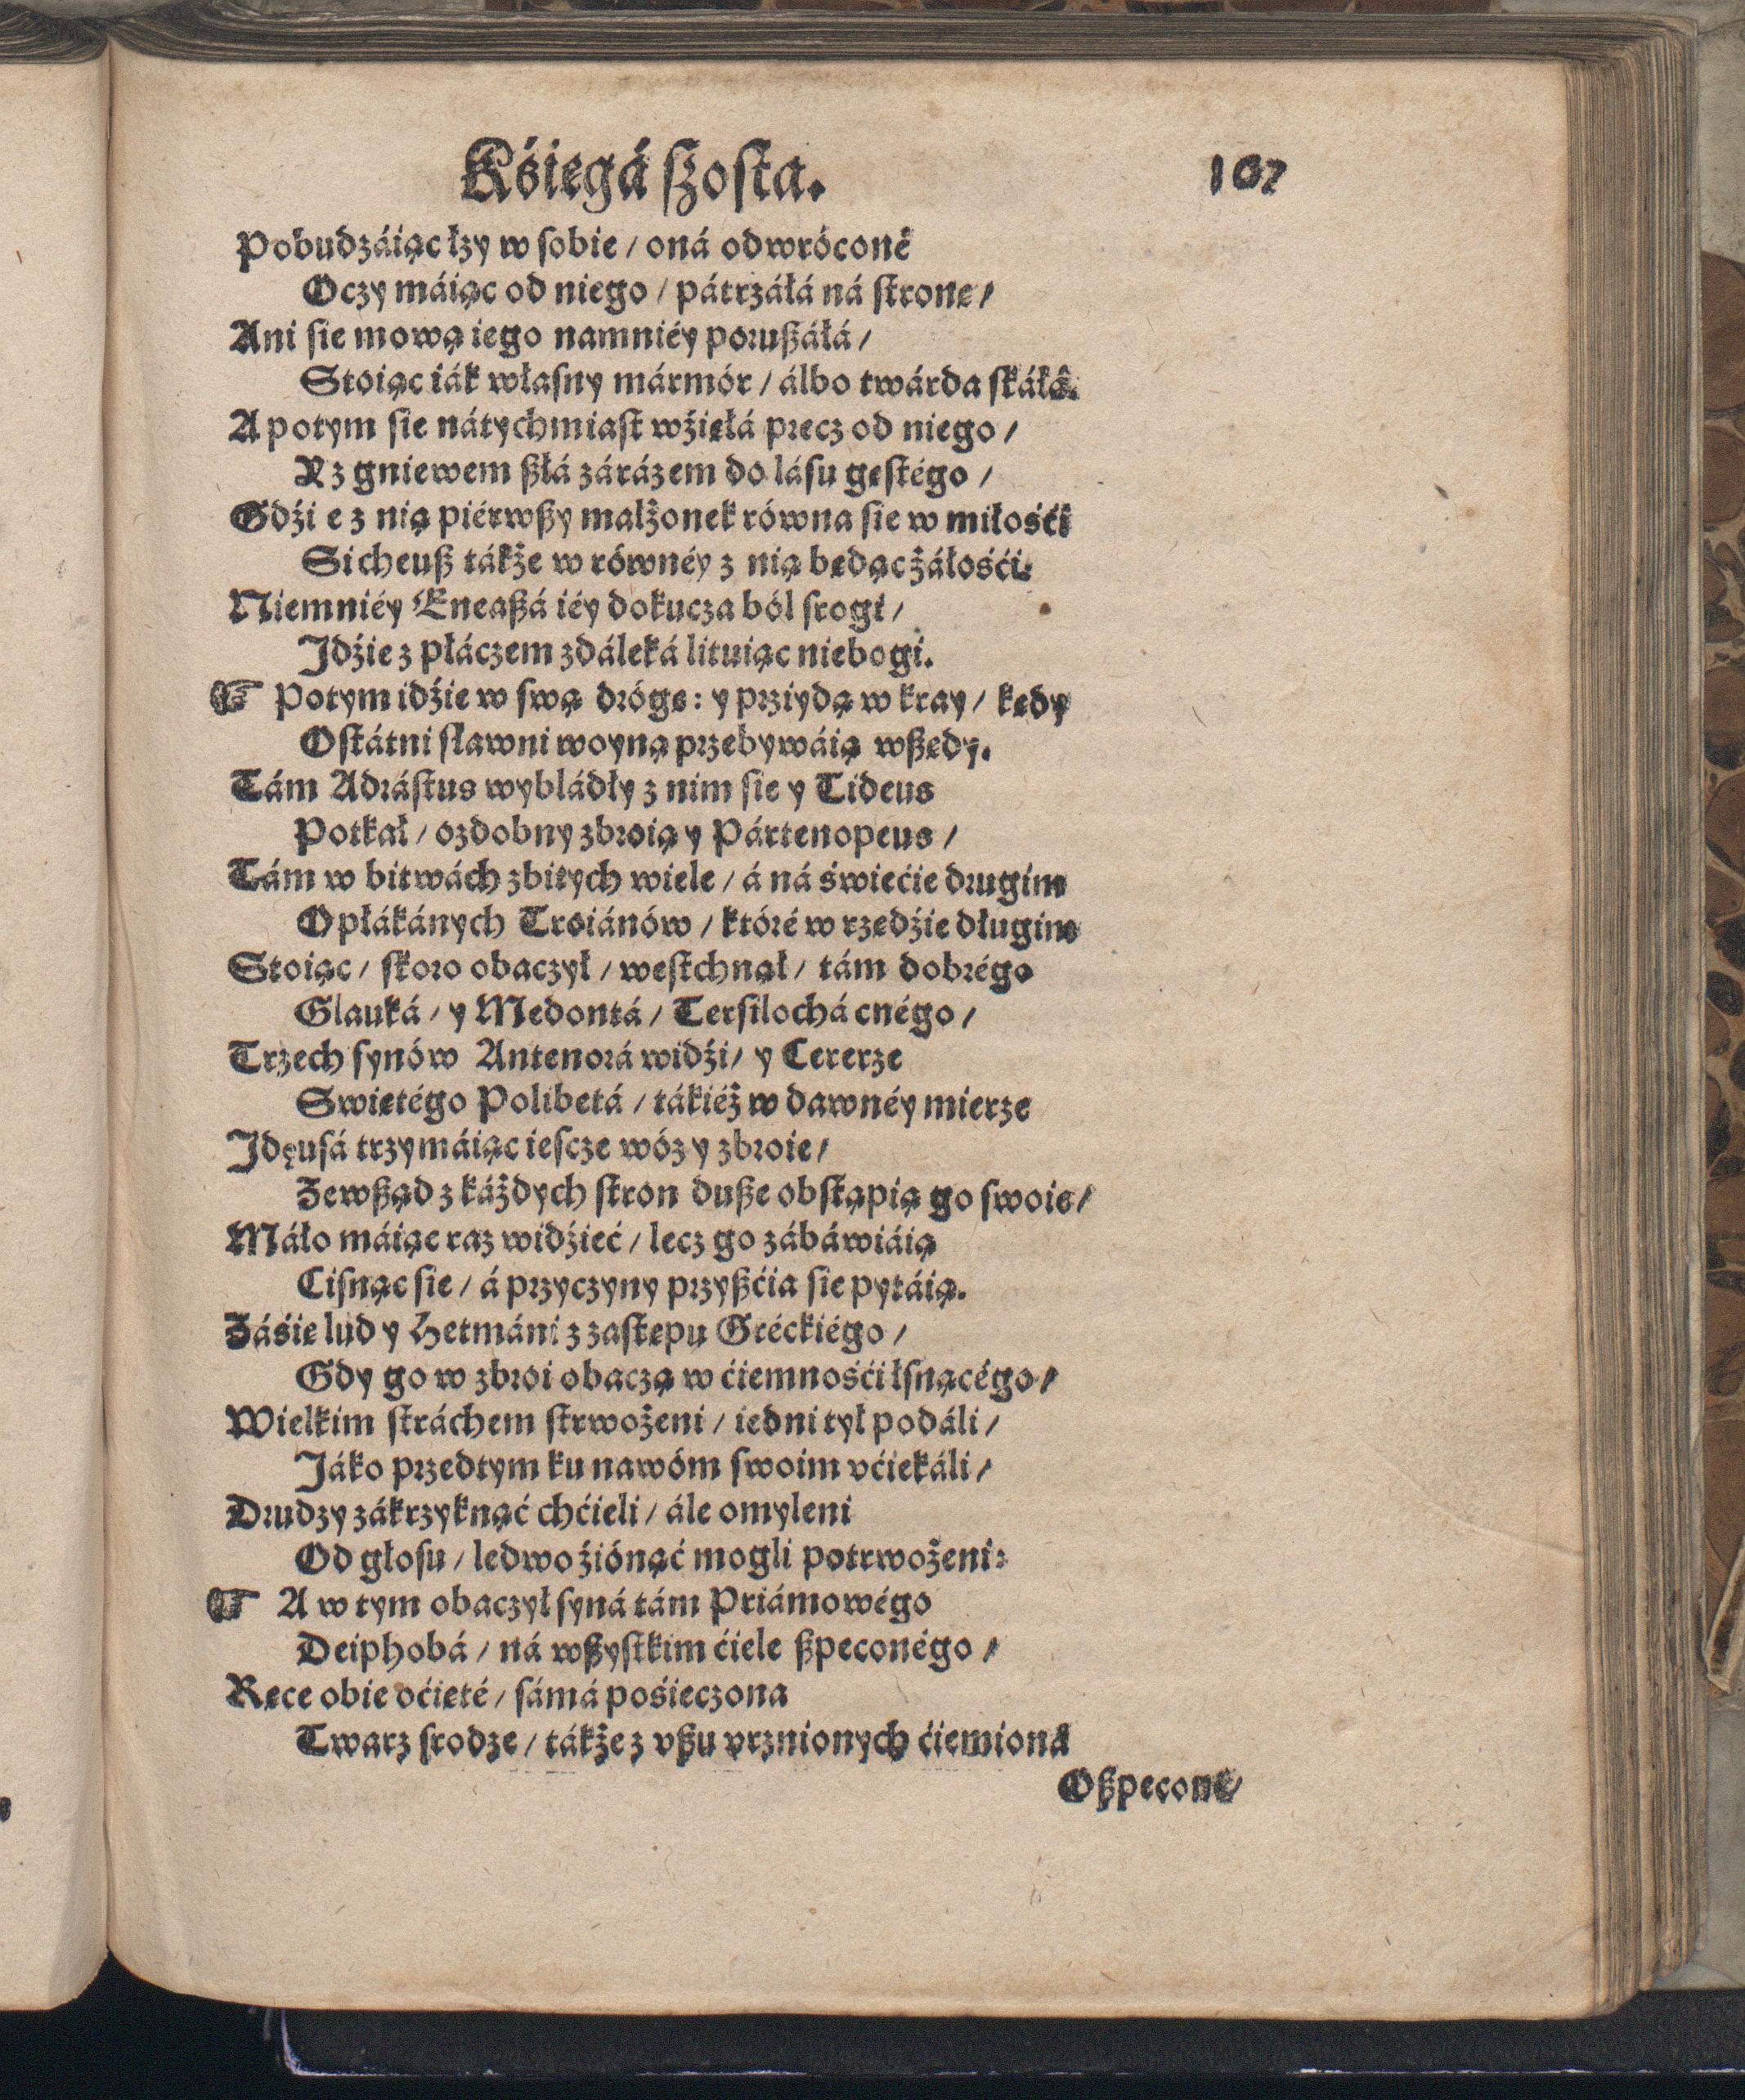 Kśiegá ſzoſta. 167
Pobudzáiąc łzy w ſobie / oná odwróconé
Oczy máiąc od niego / pátrzáłá ná ſtronę /
Ani ſie mową iego namniéy porußáłá /
Stoiąc iák właſny mármór / álbo twárda ſkáłá.
A potym ſie nátychmiaſt wźięłá precz od niego /
Y z gniewem ßłá zárázem do láſu gęſtégo /
Gdźi e z nią piérwßy małżonek równa ſie w miłośći
Sicheuß tákże w równéy z nią będąc żáłośći.
Niemniéy Eneaßá iéy dokucza ból ſrogi /
Idźie z płáczem zdáleká lituiąc niebogi.
☞ Potym idźie w ſwą drógę: y prziydą w kray / kędy
Oſtátni ſławni woyną przebywáią wßędy.
Tám Adráſtus wybládły z nim ſie y Tideus
Potkał / ozdobny zbroią y Pártenopeus /
Tám w bitwách zbitych wiele / á ná świećie drugim
Opłákánych Troiánów / któré w rzędźie długim
Stoiąc / ſkoro obaczył / weſtchnął / tám dobrégo
Glauká / y Medontá / Terſilochá cnégo /
Trzech ſynów Antenorá widźi / y Cererze
Swiętégo Polibetá / tákiéż w dawnéy mierze
Idęuſá trzymáiąc ieſcze wóz y zbroie /
Zewßąd z káżdych ſtron duße obſtąpią go ſwoie /
Máło máiąc raz widźieć / lecz go zábáwiáią
Ciſnąc ſie / á przyczyny przyßćia ſie pytáią.
Záśię lud y Hetmáni z zaſtępu Gréckiégo /
Gdy go w zbroi obaczą w ćiemnośći łſnącégo /
Wielkim ſtráchem ſtrwożeni / iedni tył podáli /
Jáko przedtym ku nawóm ſwoim vćiekáli /
Drudzy zákrzyknąć chćieli / ále omyleni
Od głoſu / ledwo źiónąć mogli potrwożeni:
☞ A w tym obaczył ſyná tám Priámowégo
Deiphobá / ná wßyſtkim ćiele ßpeconégo /
Ręce obie oćięté / ſámá pośieczona
Twarz ſrodze / tákże z vßu vrznionych ćiemioná
Oßpeconé